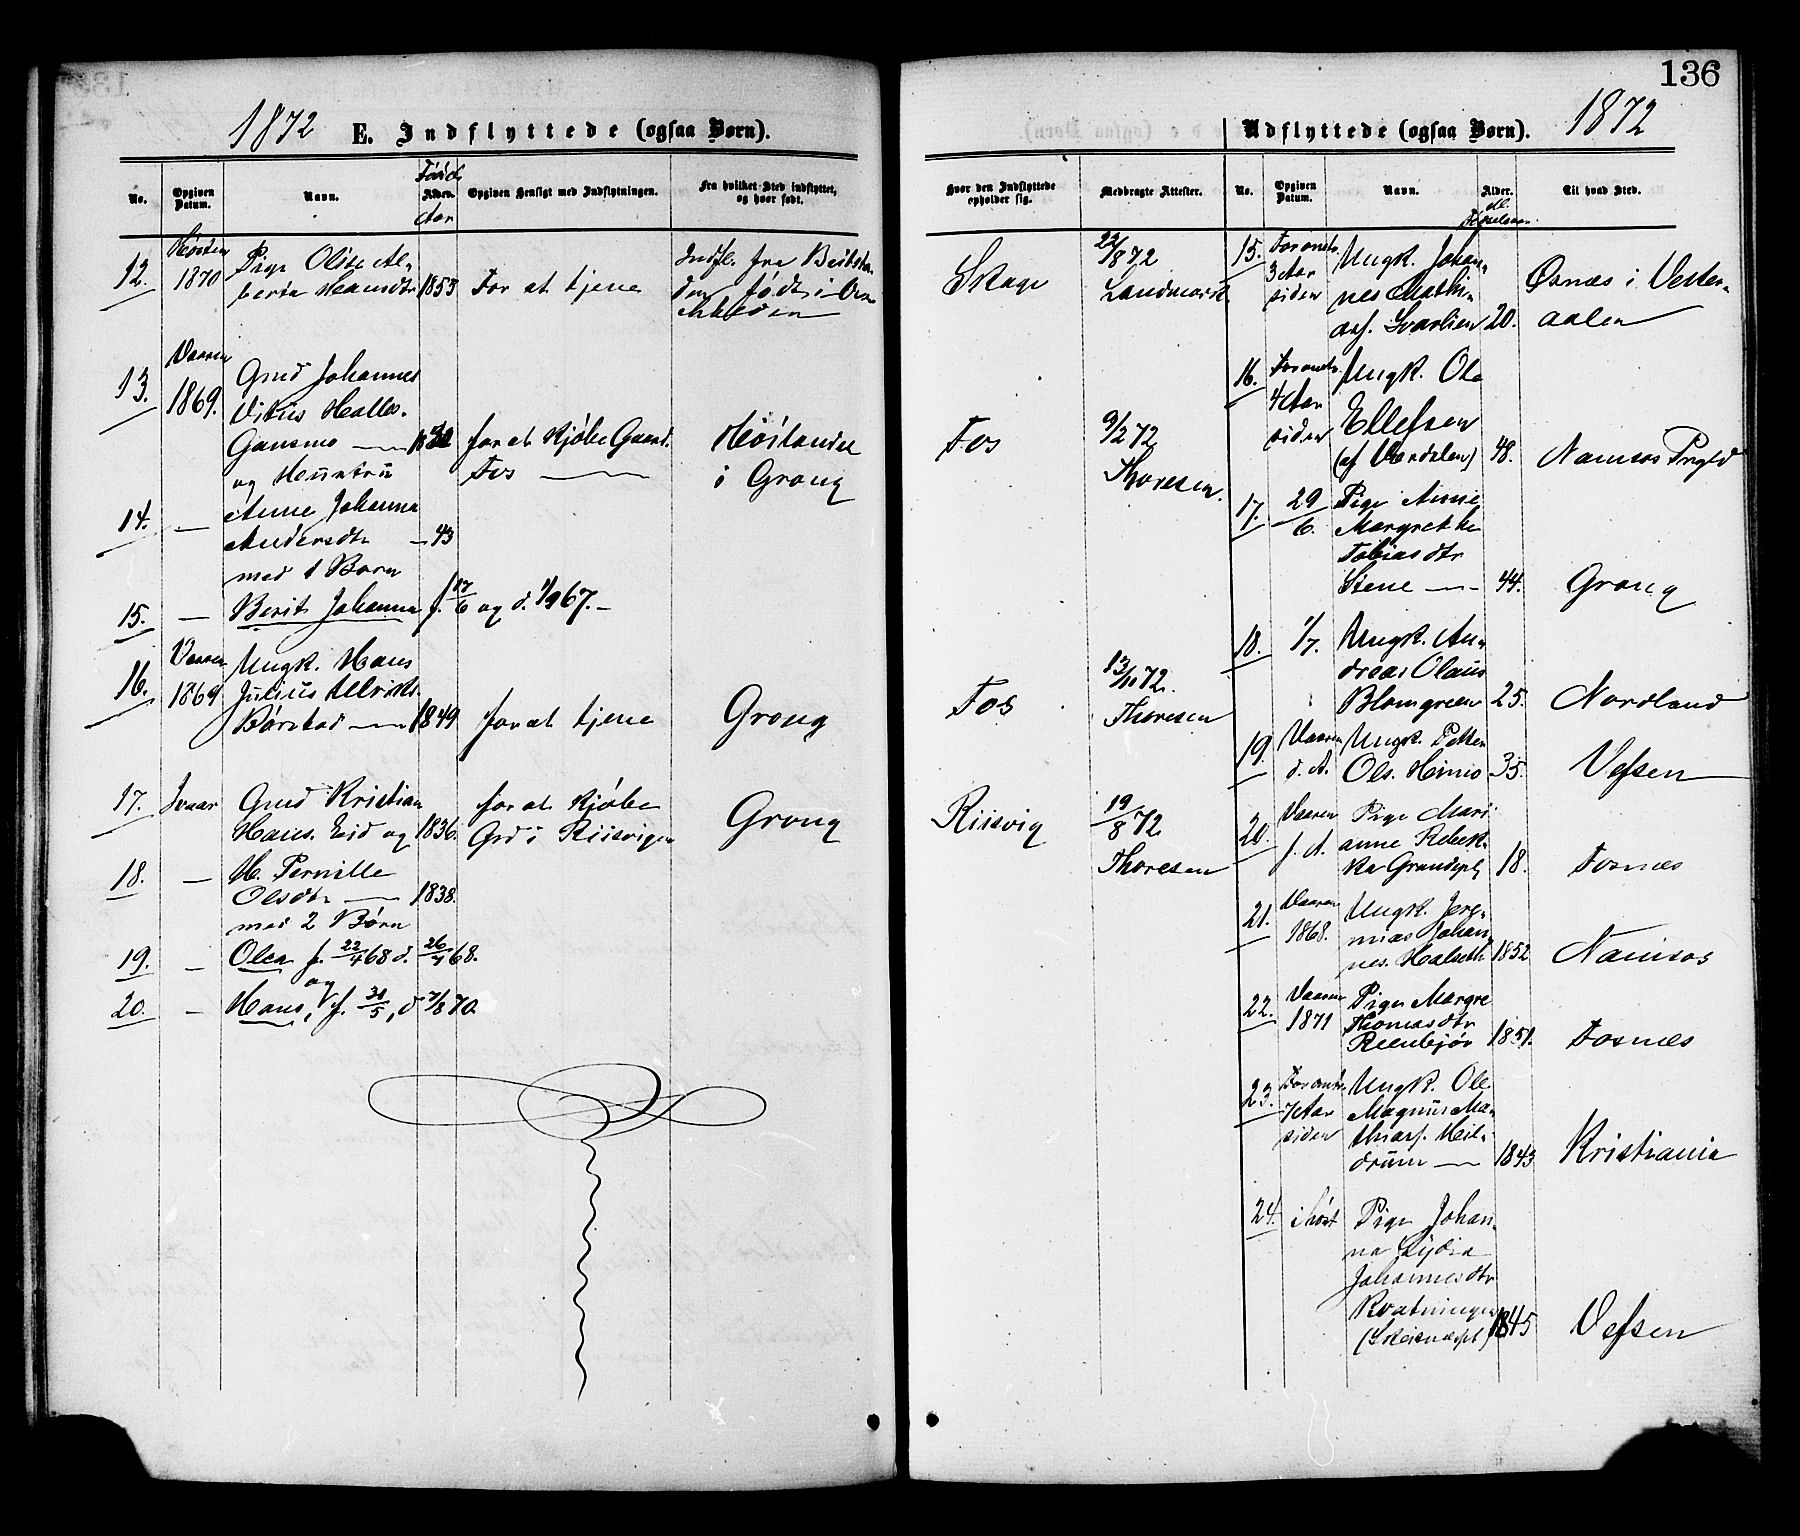 136
1872 E. Indflyttede (ogsaa Børn).
No.
Opgiven Datum.
Navn.
Føds.
Alder.
Aar
Opgiven Hensigt med Indflytningen.
Fra hvilket Sted indflyttet, og hvor født.
12.
Høsten
1870
Pige Olise Al-
berta Hansdtr
1853
For at tjene
Indfl. fra Beitsta-
den født i
13.
Vaaren
1869.
Gmd Johannes
Vitus Halles.
Gansmo
for at kjøbe Gaard.
Fos
Høilandet
i Grong
og Hustru
14.
—
Anne Johanna
Andersdtr
— 43
med 1 Barn
15.
—
Berit Johanna f. 17/6 og d. 1/9 67. –
16.
Vaaren
1869
Ungk. Hans
Julius Ulriks.
Børstad —
1849
for at tjene
Grong
17.
Ivaar
Gmd Kristian
Hans. Eid og
1836.
for at kjøbe
Grd i Riisvigen
Grong
18.
—
H. Pernille
Olsdtr —
1838.
med 2 Børn
19.
—
Olea f. 22/4 68 d. 26/4 68.
og
20.
—
Hans, f. 31/5, d 7/8 70.
Udflyttede (ogsaa Børn). 1872
Hvor den Indflyttede opholder sig.
Medbragte Attester.
No.
Opgiven Datum.
Navn.
Alder.
el.
Fødselsaar.
Til hvad Sted.
Skage
22/8 72
Landmark
Fos
9/2 72
Thoresen.
Fos
13/11 72.
Thoresen
Riisvig
19/8 72
Thoresen
15.
For omtr.
3 Aar
siden
Ungk. Johan-
nes Mathi-
asf. Svarlien
20.
Osnæs i Vester-
aalen
16.
For omtr.
4 Aar
siden
Ungk. Ole
Ellefsen
(af Værdalen)
48.
Namsos Prgld
17.
29/6.
Pige Anne
Margrethe
Tobiasdtr
Stene —
44.
Grong
18.
1/7.
Ungk. An-
dreas Olaus
Blomgreen
25.
Nordland
19.
Vaaren
d. A.
Ungk. Petter
Ols. Himo
35.
Vefsen
20.
Vaaren
f. A.
Pige Mari
anne Rebek-
ka Grandspl
18.
Fosnæs
21.
Vaaren
1868.
Ungk. Jere-
mias Johan-
nes. Halseth
1852
Namsos
22.
Vaaren
1871
Pige Margre
Thomasdtr
Reenbjør
1851.
Fosnæs
23.
For omtr.
7 Aar
siden
Ungk. Ole
Magnus Ma-
thiasf. Heil-
drum —
1843
Kristiania
24.
i høst
Pige Johan-
na Lydia
Johannesdtr
Kvatningen
(Skeisnæspl)
1845
Vefsen